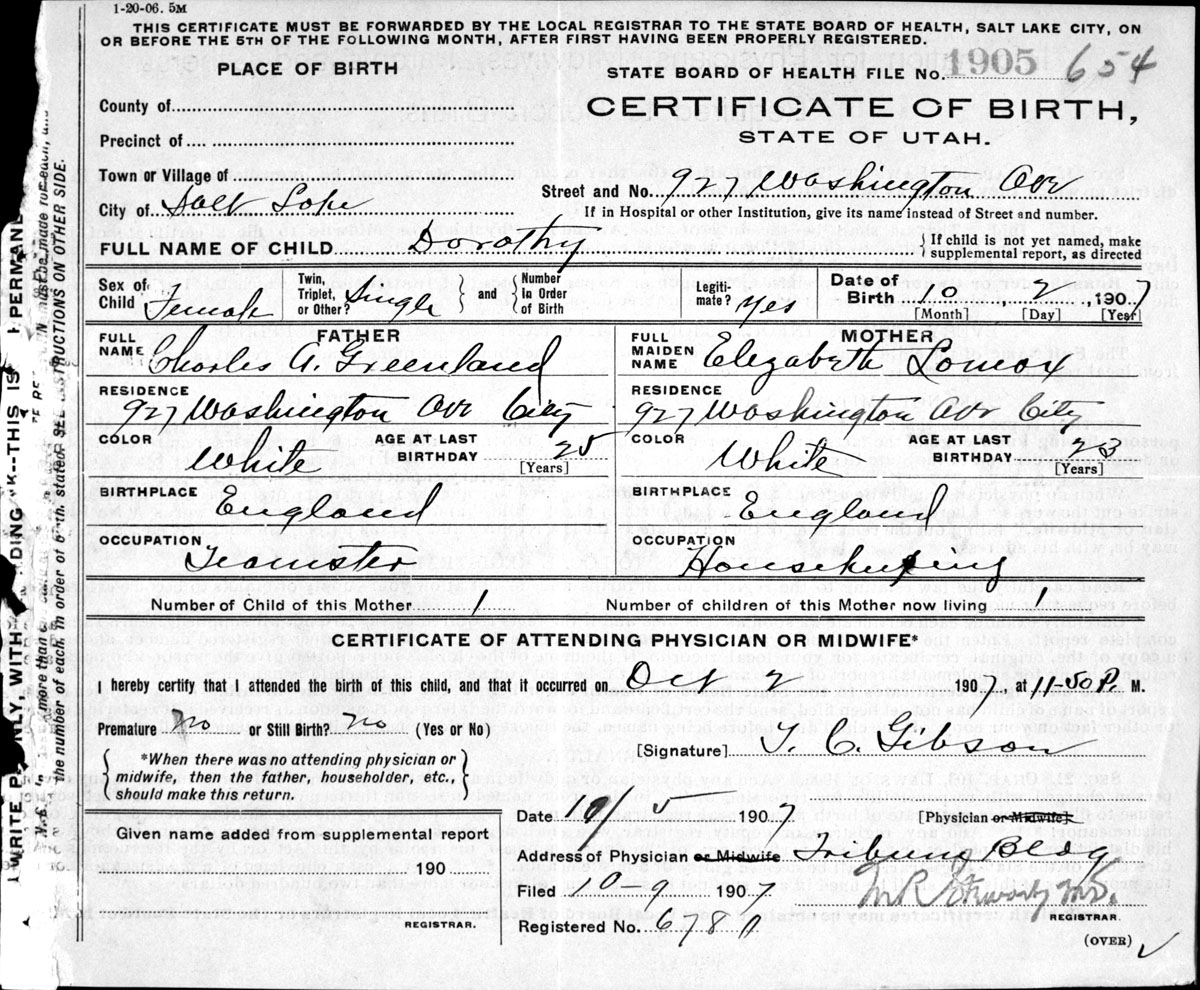 1-20-06. 5M
THIS CERTIFICATE MUST BE FORWARDED BY THE LOCAL REGISTRAR TO THE STATE BOARD OF HEALTH, SALT LAKE CITY, ON
OR BEFORE THE 5TH OF THE FOLLOWING MONTH, AFTER FIRST HAVING BEEN PROPERLY REGISTERED.
PLACE OF BIRTH
STATE BOARD OF HEALTH FILE No. 1905 654
County of
CERTIFICATE OF BIRTH,
Precinct of
STATE OF UTAH.
Town or Village of
Street and No. 927 Washington Ave
City of Salt Lake
If in Hospital or other Institution, give its name instead of Street and number.
FULL NAME OF CHILD Dorothy
If child is not yet named, make
supplemental report, as directed
Sex of Child Female
Twin, Triplet, or Other? Single
and
Number In Order of Birth
Legiti-mate? Yes
Date of Birth 10 2, 1907
[Month] [Day] [Year]
FATHER
FULL NAME Charles A. Greenland
RESIDENCE
927 Washington Ave City
COLOR White
AGE AT LAST BIRTHDAY 25
[Years]
BIRTHPLACE
England
OCCUPATION
Teamster
MOTHER
FULL MAIDEN NAME Elizabeth Lomax
RESIDENCE
927 Washington Ave City
COLOR White
AGE AT LAST BIRTHDAY 23
[Years]
BIRTHPLACE
England
OCCUPATION
Housekeeping
Number of Child of this Mother 1
Number of children of this Mother now living 1
CERTIFICATE OF ATTENDING PHYSICIAN OR MIDWIFE*
I hereby certify that I attended the birth of this child, and that it occurred Oct 2 1907, at 11-50 P. M.
Premature No or Still Birth? No (Yes or No)
[Signature] T. C. Gibson
*When there was no attending physician or
midwife, then the father, householder, etc.,
should make this return.
Date 10/5 1907
[Physician or Midwife]
Given name added from supplemental report
190
REGISTRAR.
Address of Physician or Midwife Tribune Bldg
Filed 10-9 1907
REGISTRAR.
Registered No. 678
(OVER)
WRITE P ONLY WITH
DING
K--THIS IS
PERMANE
the number of each, in order of birth, stated. SEE INSTRUCTIONS ON OTHER SIDE.